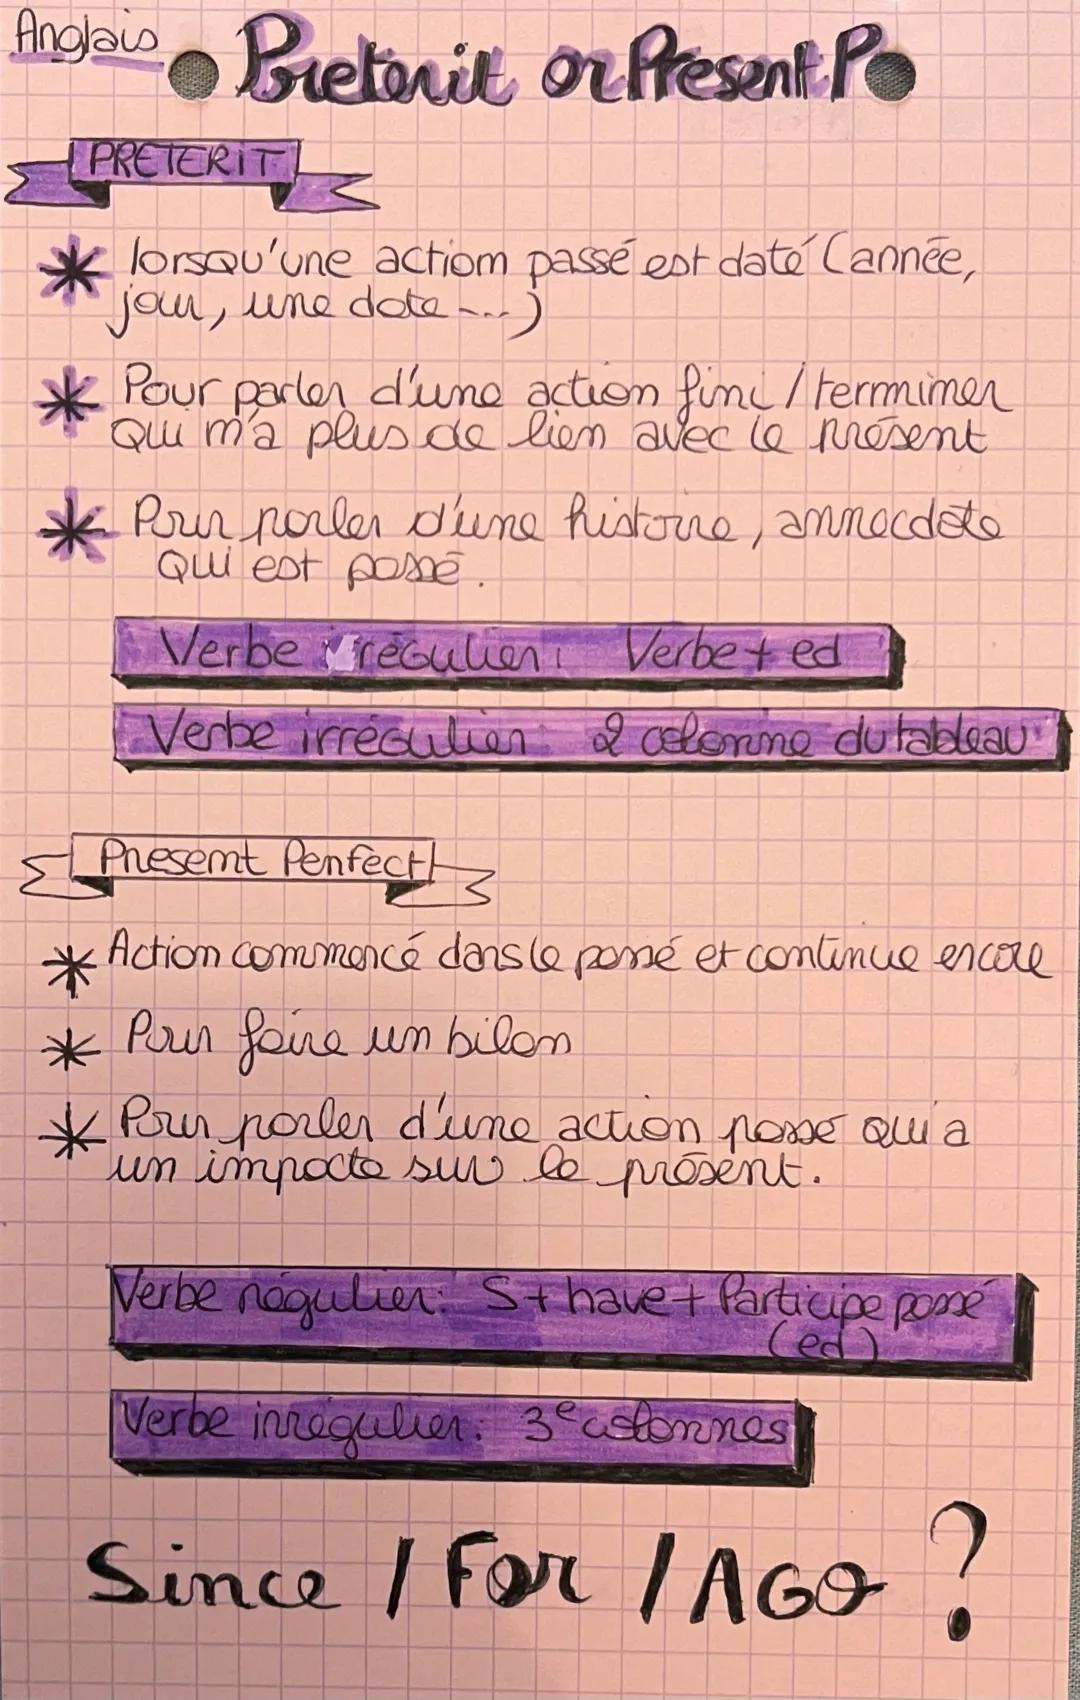 Anglais
Preterit or Present P
PRETERIT
* lorsqu'une action passé est daté (année,
jour, une date ....)
* Pour parler d'une action fini / terminer
Qui n'a plus de lien avec le présent
* Pour parler d'une histoire, annecdote
Qui est passé.
Verbe régulier: Verbe + ed
Verbe irrégulier: 2 colonne du tableau
Present Perfect
* Action commencé dans le passé et continue encore
* Pour faire un bilan
* Pour parler d'une action passé qui a
un impacte sur le présent.
Verbe régulier: S + have + Participe passé
(ed)
Verbe irrégulier: 3e colonnes
Since / For / AGO ?